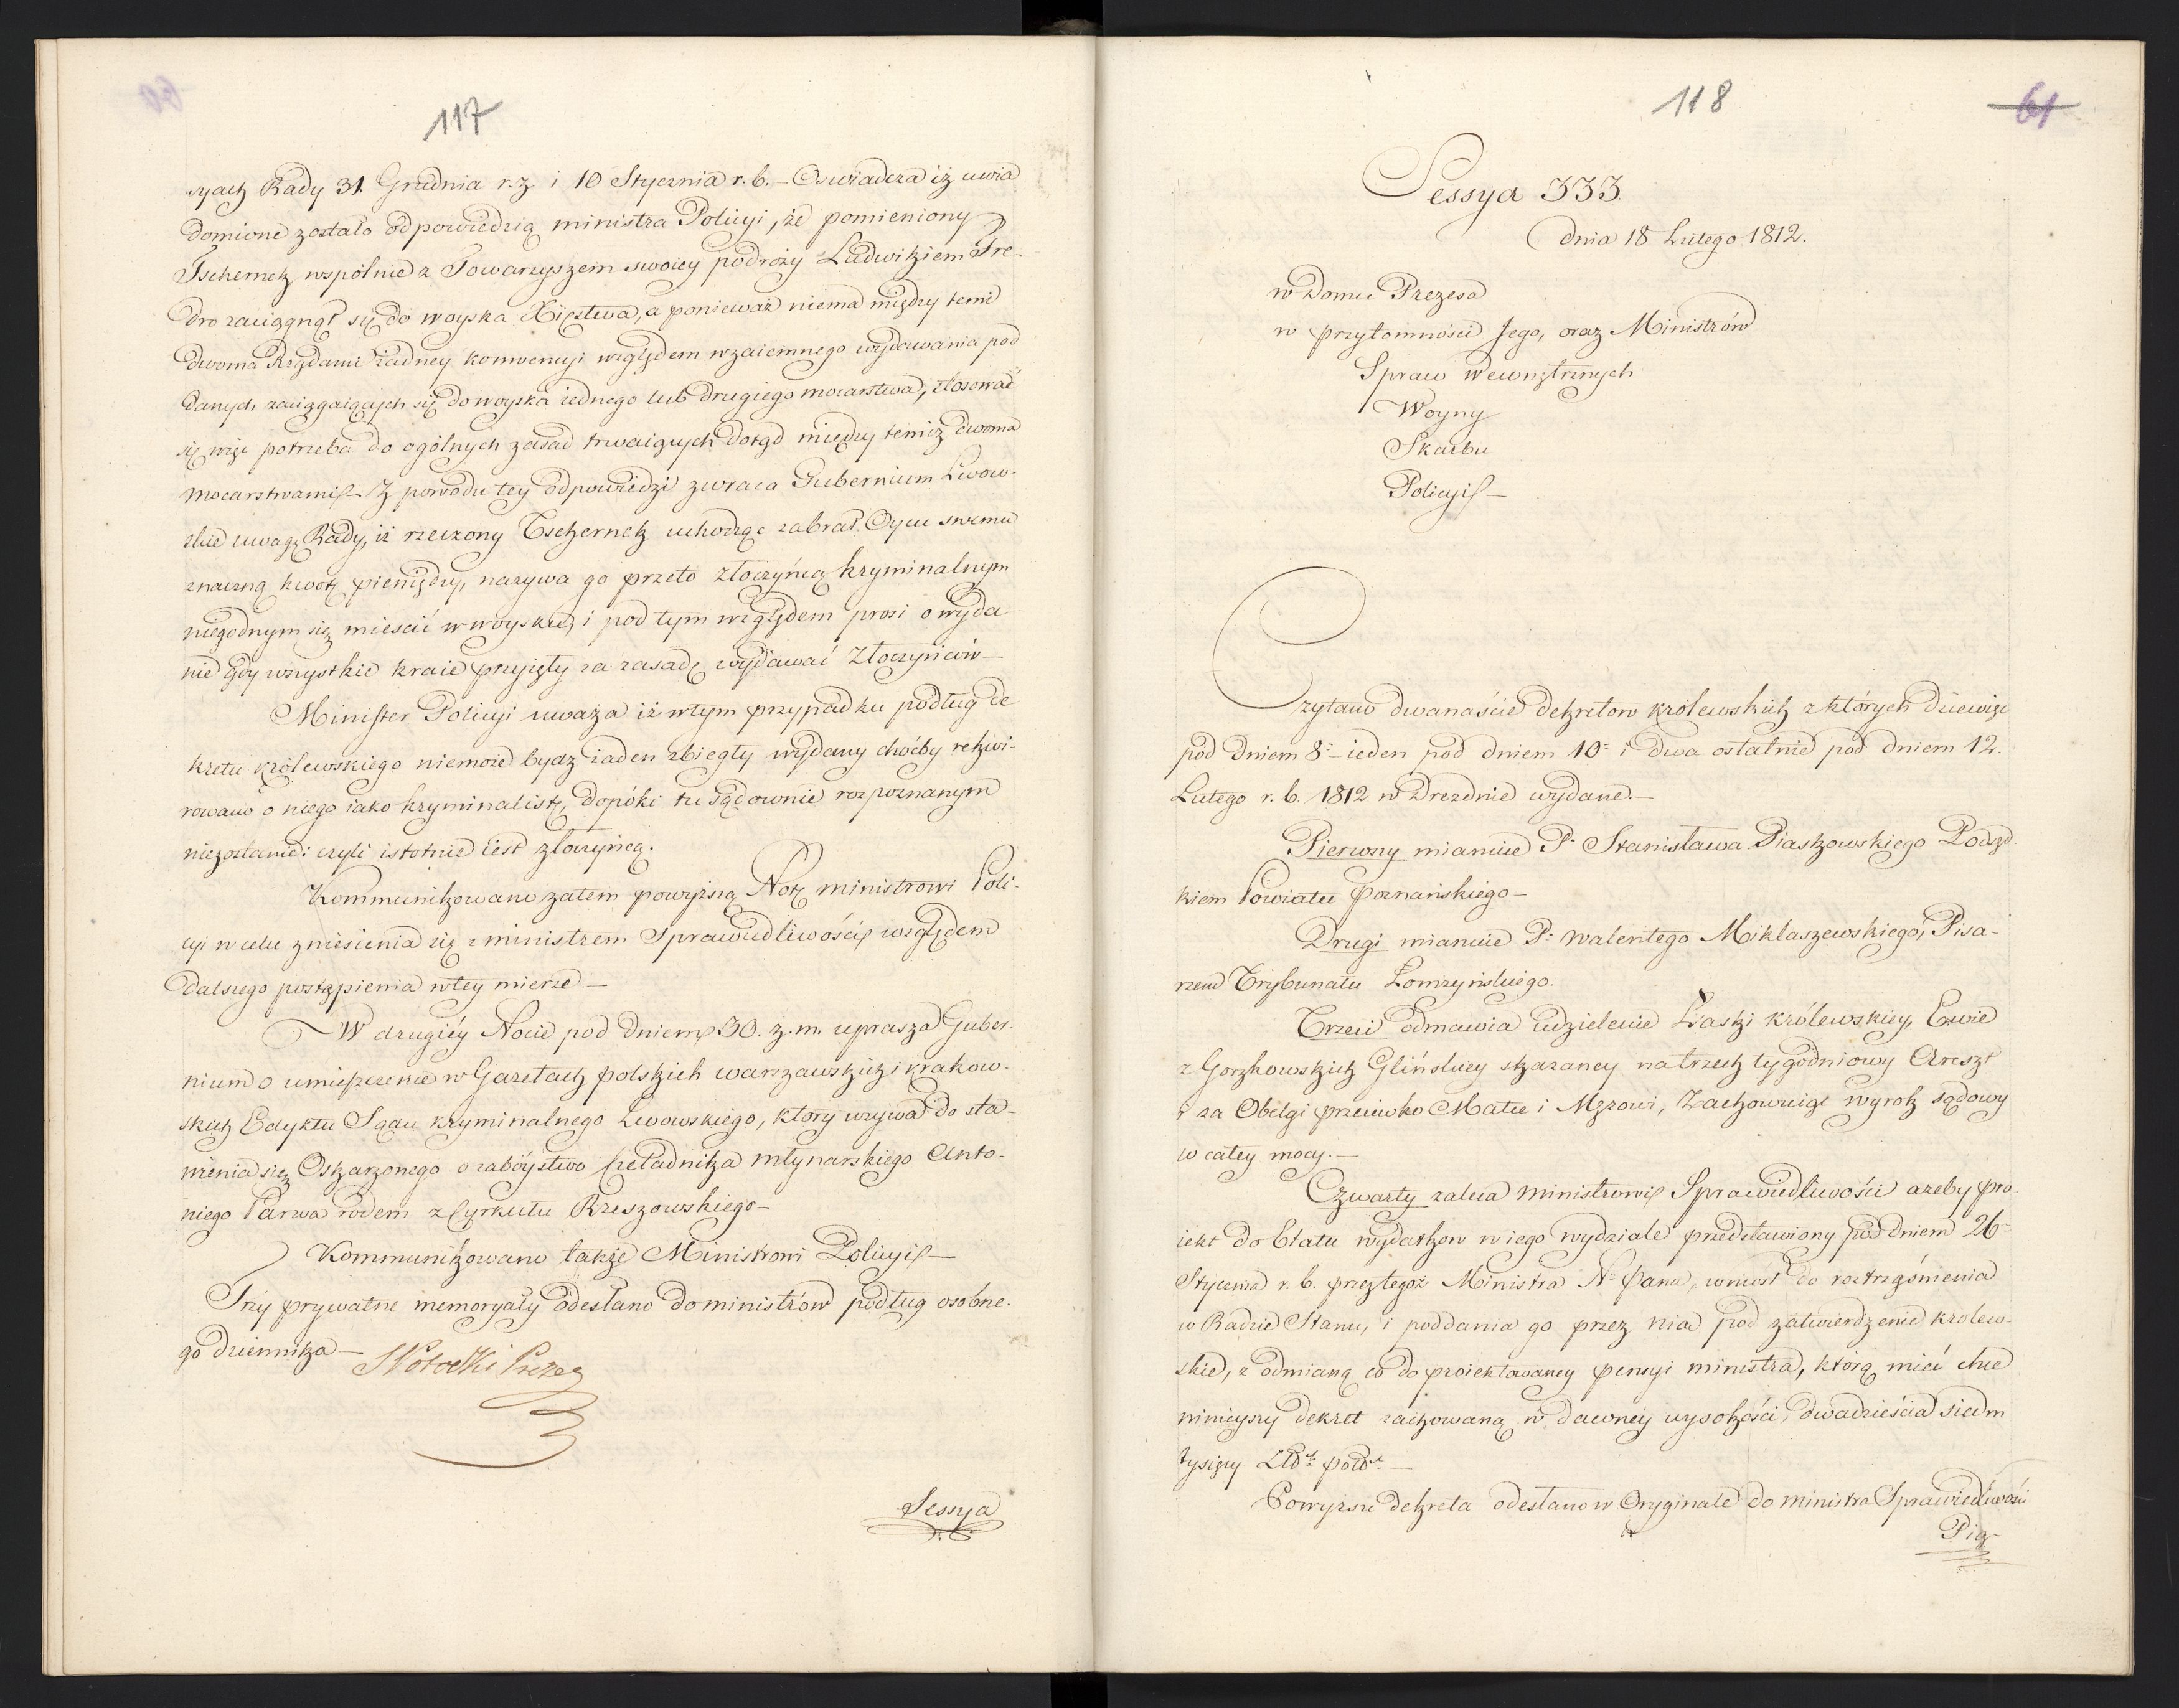 117
syach Rady 31. Grudnia r. z. i 10 Stycznia r. b. – Oswiadcza iż uwia
domione zostało odpowiedzią ministra Policyi, że pomieniony
Tschernek wspólnie z Towarzyszem swoiey podróży Ludwikiem Fre-
dro zaciągnął się do woyska Xięstwa, a ponieważ niema między temi
dwoma Rządami żadney konwencyi względem wzaiemnego wydawania pod
danych zaciągaiących się do woyska iednego lub drugiego mocarstwa, stosować
się więc potrzeba do ogólnych zasad trwaiących dotąd między temiż dwoma
mocarstwami – Z powodu tey odpowiedzi zwraca Gubernium Lwow-
skie uwagę Rady, iż rzeczony Tschernek uchodząc zabrał Oycu swemu
znaczną kwotę pieniędzy, nazywa go przeto złoczyńcą kryminalnym
niegodnym się mieścić w woysku, i pod tym względem prosi o wyda
nie gdy wszystkie kraie przyięły za zasadę wydawać Złoczyńców –
Minister Policyi uważa iż w tym przypadku podług De
kretu królewskiego niemoże bydz żaden zbiegły wydany choćby rekwi-
rowano o niego iako kryminalistę, dopóki tu sądownie rozpoznanym
niezostanie: czyli istotnie iest złoczyńcą.
Kommunikowano zatem powyższą Notę ministrowi Poli-
cyi w celu zniesienia się z ministrem Sprawiedliwości względem
dalszego postąpienia w tey mierze –
W drugiéy Nocie pod dniem 30. z. m. uprasza Guber-
nium o umieszczenie w Gazetach polskich warszawskich i krakow-
skich Edyktu Sądu kryminalnego Lwowskiego, który wzywa do sta-
wienia się Oskarzonego o zabóystwo czeladnika młynarskiego Anto-
niego Parwa rodem z Cyrkułu Rzeszowskiego –
Kommunikowano także Ministrowi Policyi –
Trzy prywatne memoryały odesłano do ministrów podług osóbne-
go dziennika –
SPotocki Prezes
Sessya
118
61
Sessya 333.
dnia 18 Lutego 1812.
w Domu Prezesa
w przytomności Jego, oraz Ministrów
Spraw Wewnętrznych
Woyny
Skarbu
Policyi –
Czytano dwanaście dekretow królewskich z których dziewięć
pod dniem 8= ieden pod dniem 10= i dwa ostatnie pod dniem 12.
Lutego r. b. 1812 w Dreznie wydane. –
Pierwszy mianuie P. Stanisława Piaskowskiego Podsęd
kiem Powiatu Poznańskiego –
Drugi mianuie P. Walentego Miklaszewskiego, Pisa-
rzem Trybunału Łomżyńskiego.
Trzeci odmawia udzielenie Łaski królewskiey, Ewie
z Gorzkowskich Glińskiey skazaney na trzech tygodniowy Areszt
za Obelgi przeciwko Matce i Mężowi, Zachowuiąc wyrok sądowy
w całey mocy. –
Czwarty zaleca ministrowi Sprawiedliwości azeby pro
iekt do Etatu wydatkow w iego wydziale przedstawiony pod dniem 26=
Stycznia r. b. przez tegoż Ministra N. Panu, wniosł do roztrząśnienia
w Radzie Stanu, i poddania go przez nią pod zatwierdzenie krolew-
skie, z odmianą co do proiektowaney pensyi ministra, którą mieć chce
ninieyszy dekret zachowaną w dawnéy wysokości, dwadzieścia siedm
tysięcy Złł. pols.
Powyższe dekreta odesłano w Oryginale do ministra Sprawiedliwości
Pią-